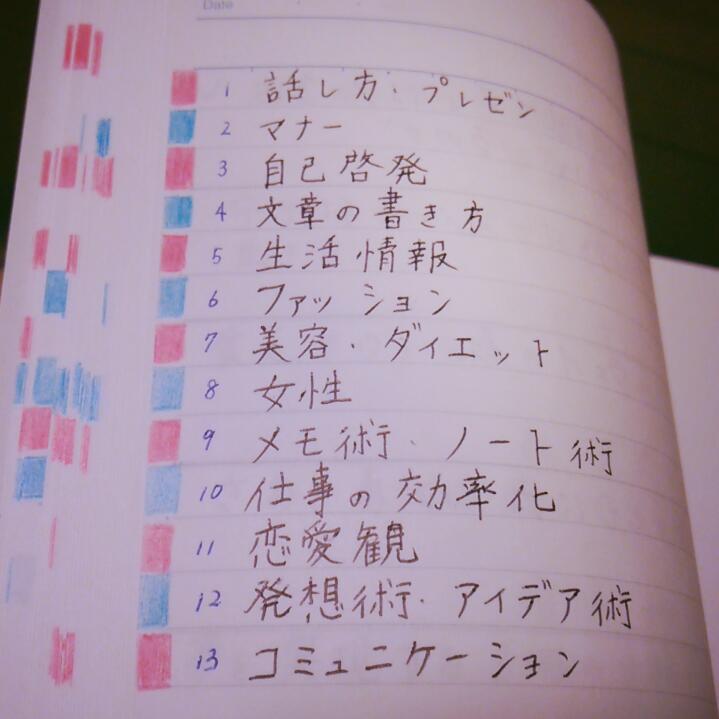 Date
1 話し方・プレゼン
2 マナー
3 自己啓発
4 文章の書き方
5 生活情報
6 ファッション
7 美容・ダイエット
8 女性
9 メモ術・ノート術
10 仕事の効率化
11 恋愛観
12 発想術・アイデア術
13 コミュニケーション